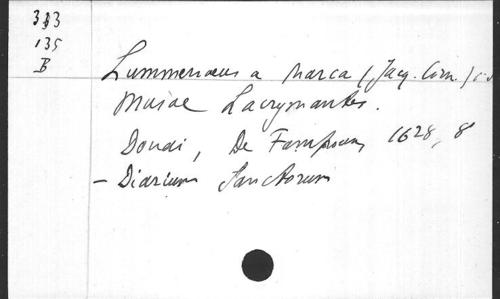 313
135
B
Lummenaeus a Marca (Jacq. Corn.)
Musae Lacrymantes.
Douai, De Fampoux, 1628, 8°
- Diarium Sanctorum